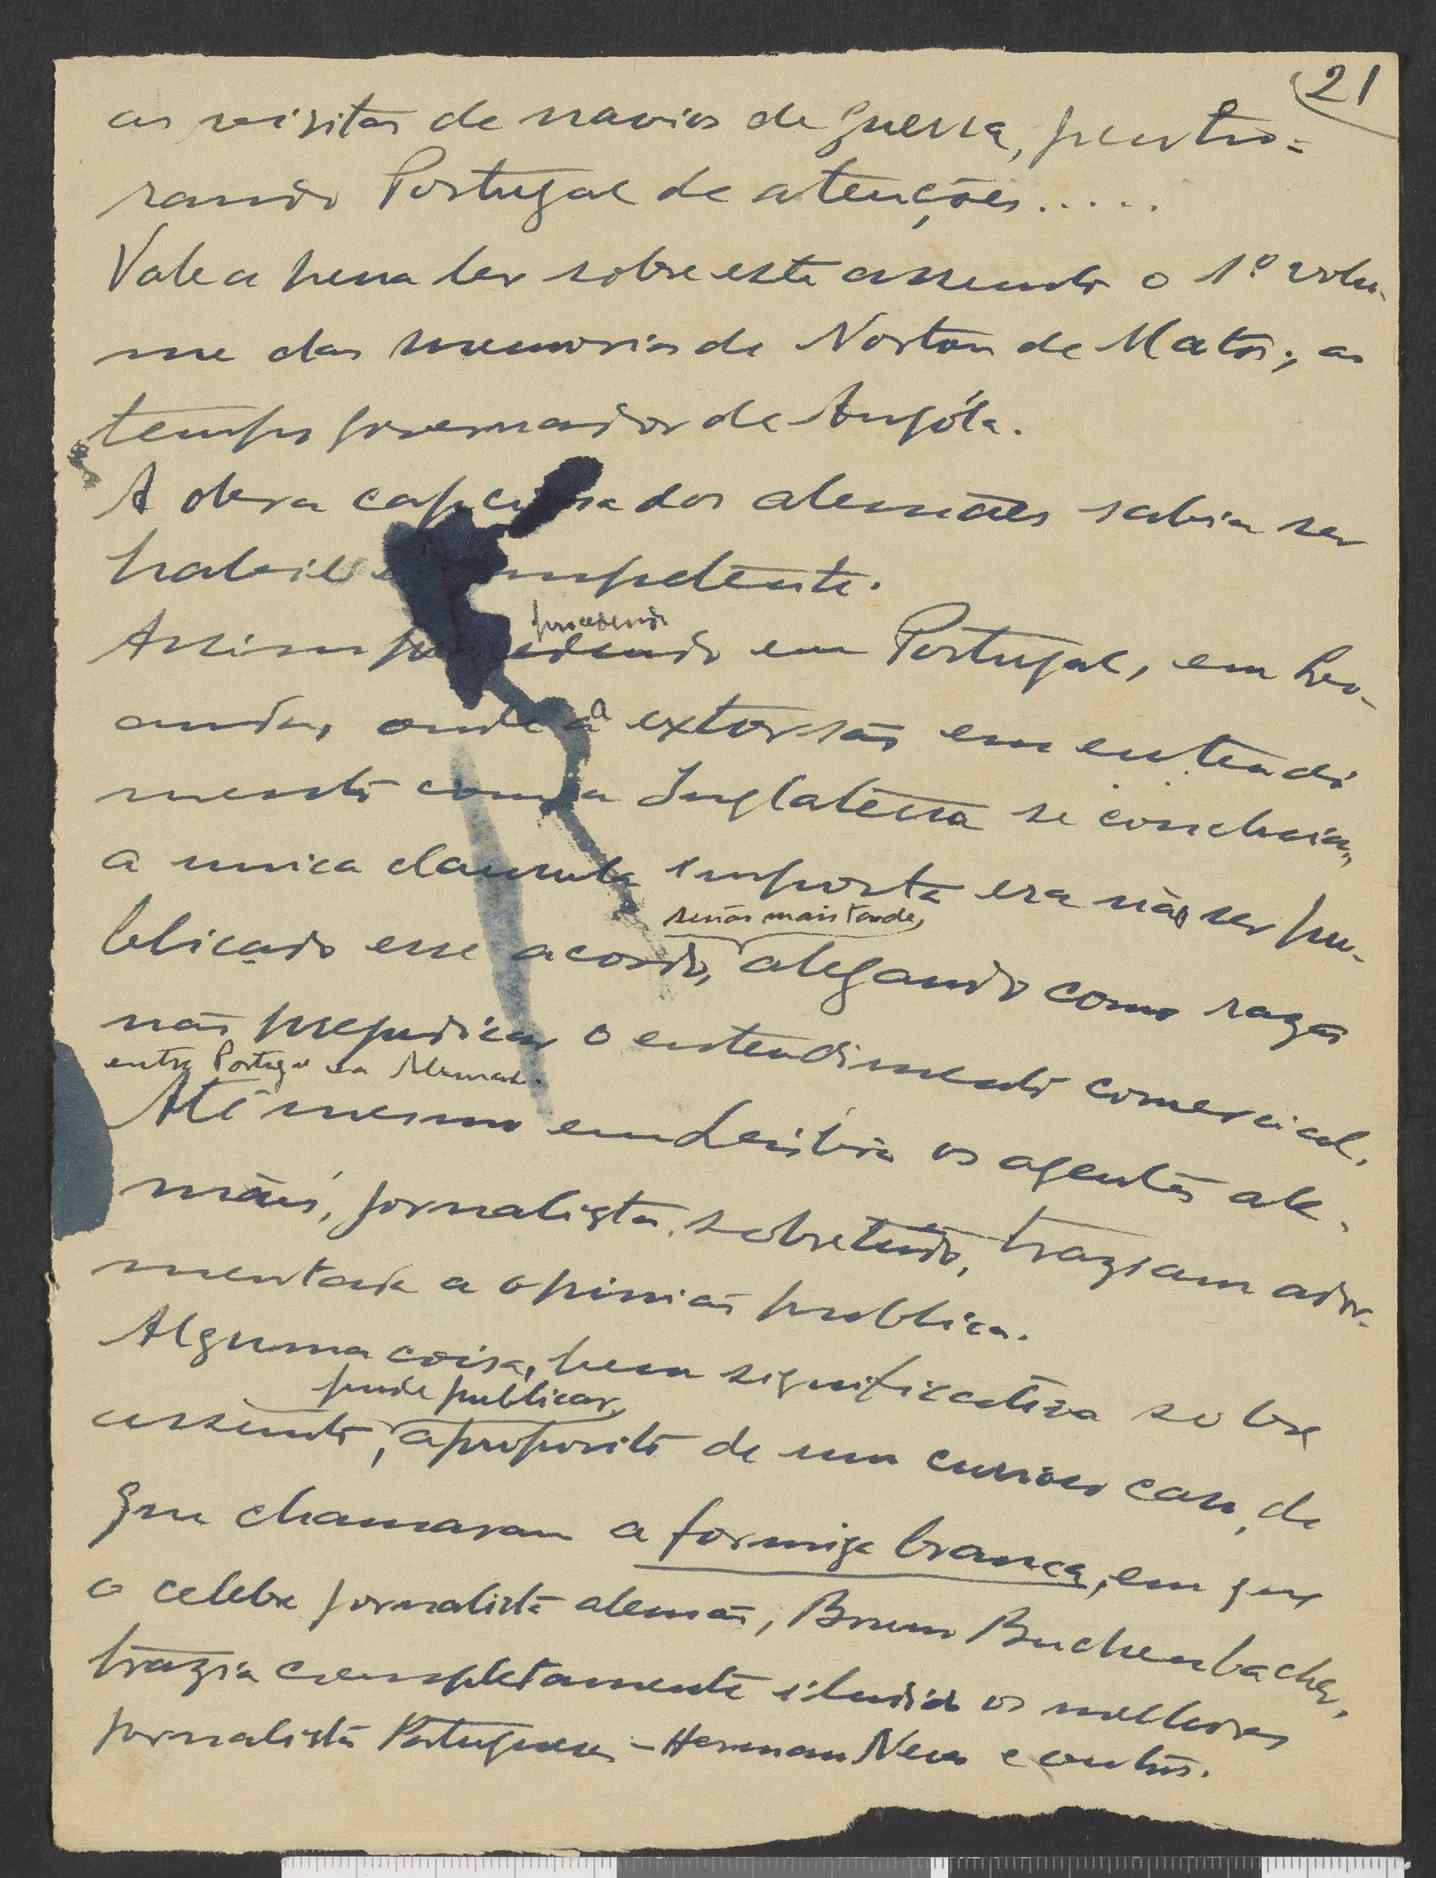 21
as visitas de navios de guerra, penho=
rando Portugal de atenções.....
Vale a pena ler sobre este assunto o 1º volu-
me das memorias de Norton de Matos, ao
tempo governador de Angóla.
A obra capciosa dos alemães sabia ser
habil e competente.
procedendo
Assim procedendo em Portugal, em Lou-
anda, onde a extorsão em entendi
mento com a Inglaterra se concluia,
a unica clausula imposta era não ser pu-
senão mais tarde,
blicado esse acordo, alegando como razão
não prejudicar o entendimento comercial.
entre Portugal e a Alemanha.
Até mesmo em Lisbôa os agentes ale-
mães, jornalistas, sobretudo, traziam ador-
mentada a opinião publica.
Alguma coisa, bem significativa sobre
pude publicar,
assunto, aproposito de um curioso caso, de
que chamaram a formiga branca, em que
o celebre jornalista alemão, Bruno Buchenbacher,
trazia completamente iludido os melhores
jornalistas Portugueses - Herman Neves e outros.